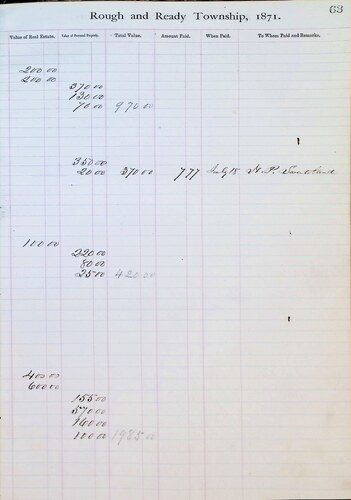 63
Rough and Ready Township, 1871.
Value of Real Estate. Value of Personal Property. Total Value. Amount Paid. When Paid. To Whom Paid and Remarks.
200 00
200 00
370 00
130 00
70 00 970 00
350 00
20 00 370 00 7 77 July 18
100 00
220 00
80 00
25 00 420 00
400 00
600 00
155 00
570 00
160 00
100 00 1985 00